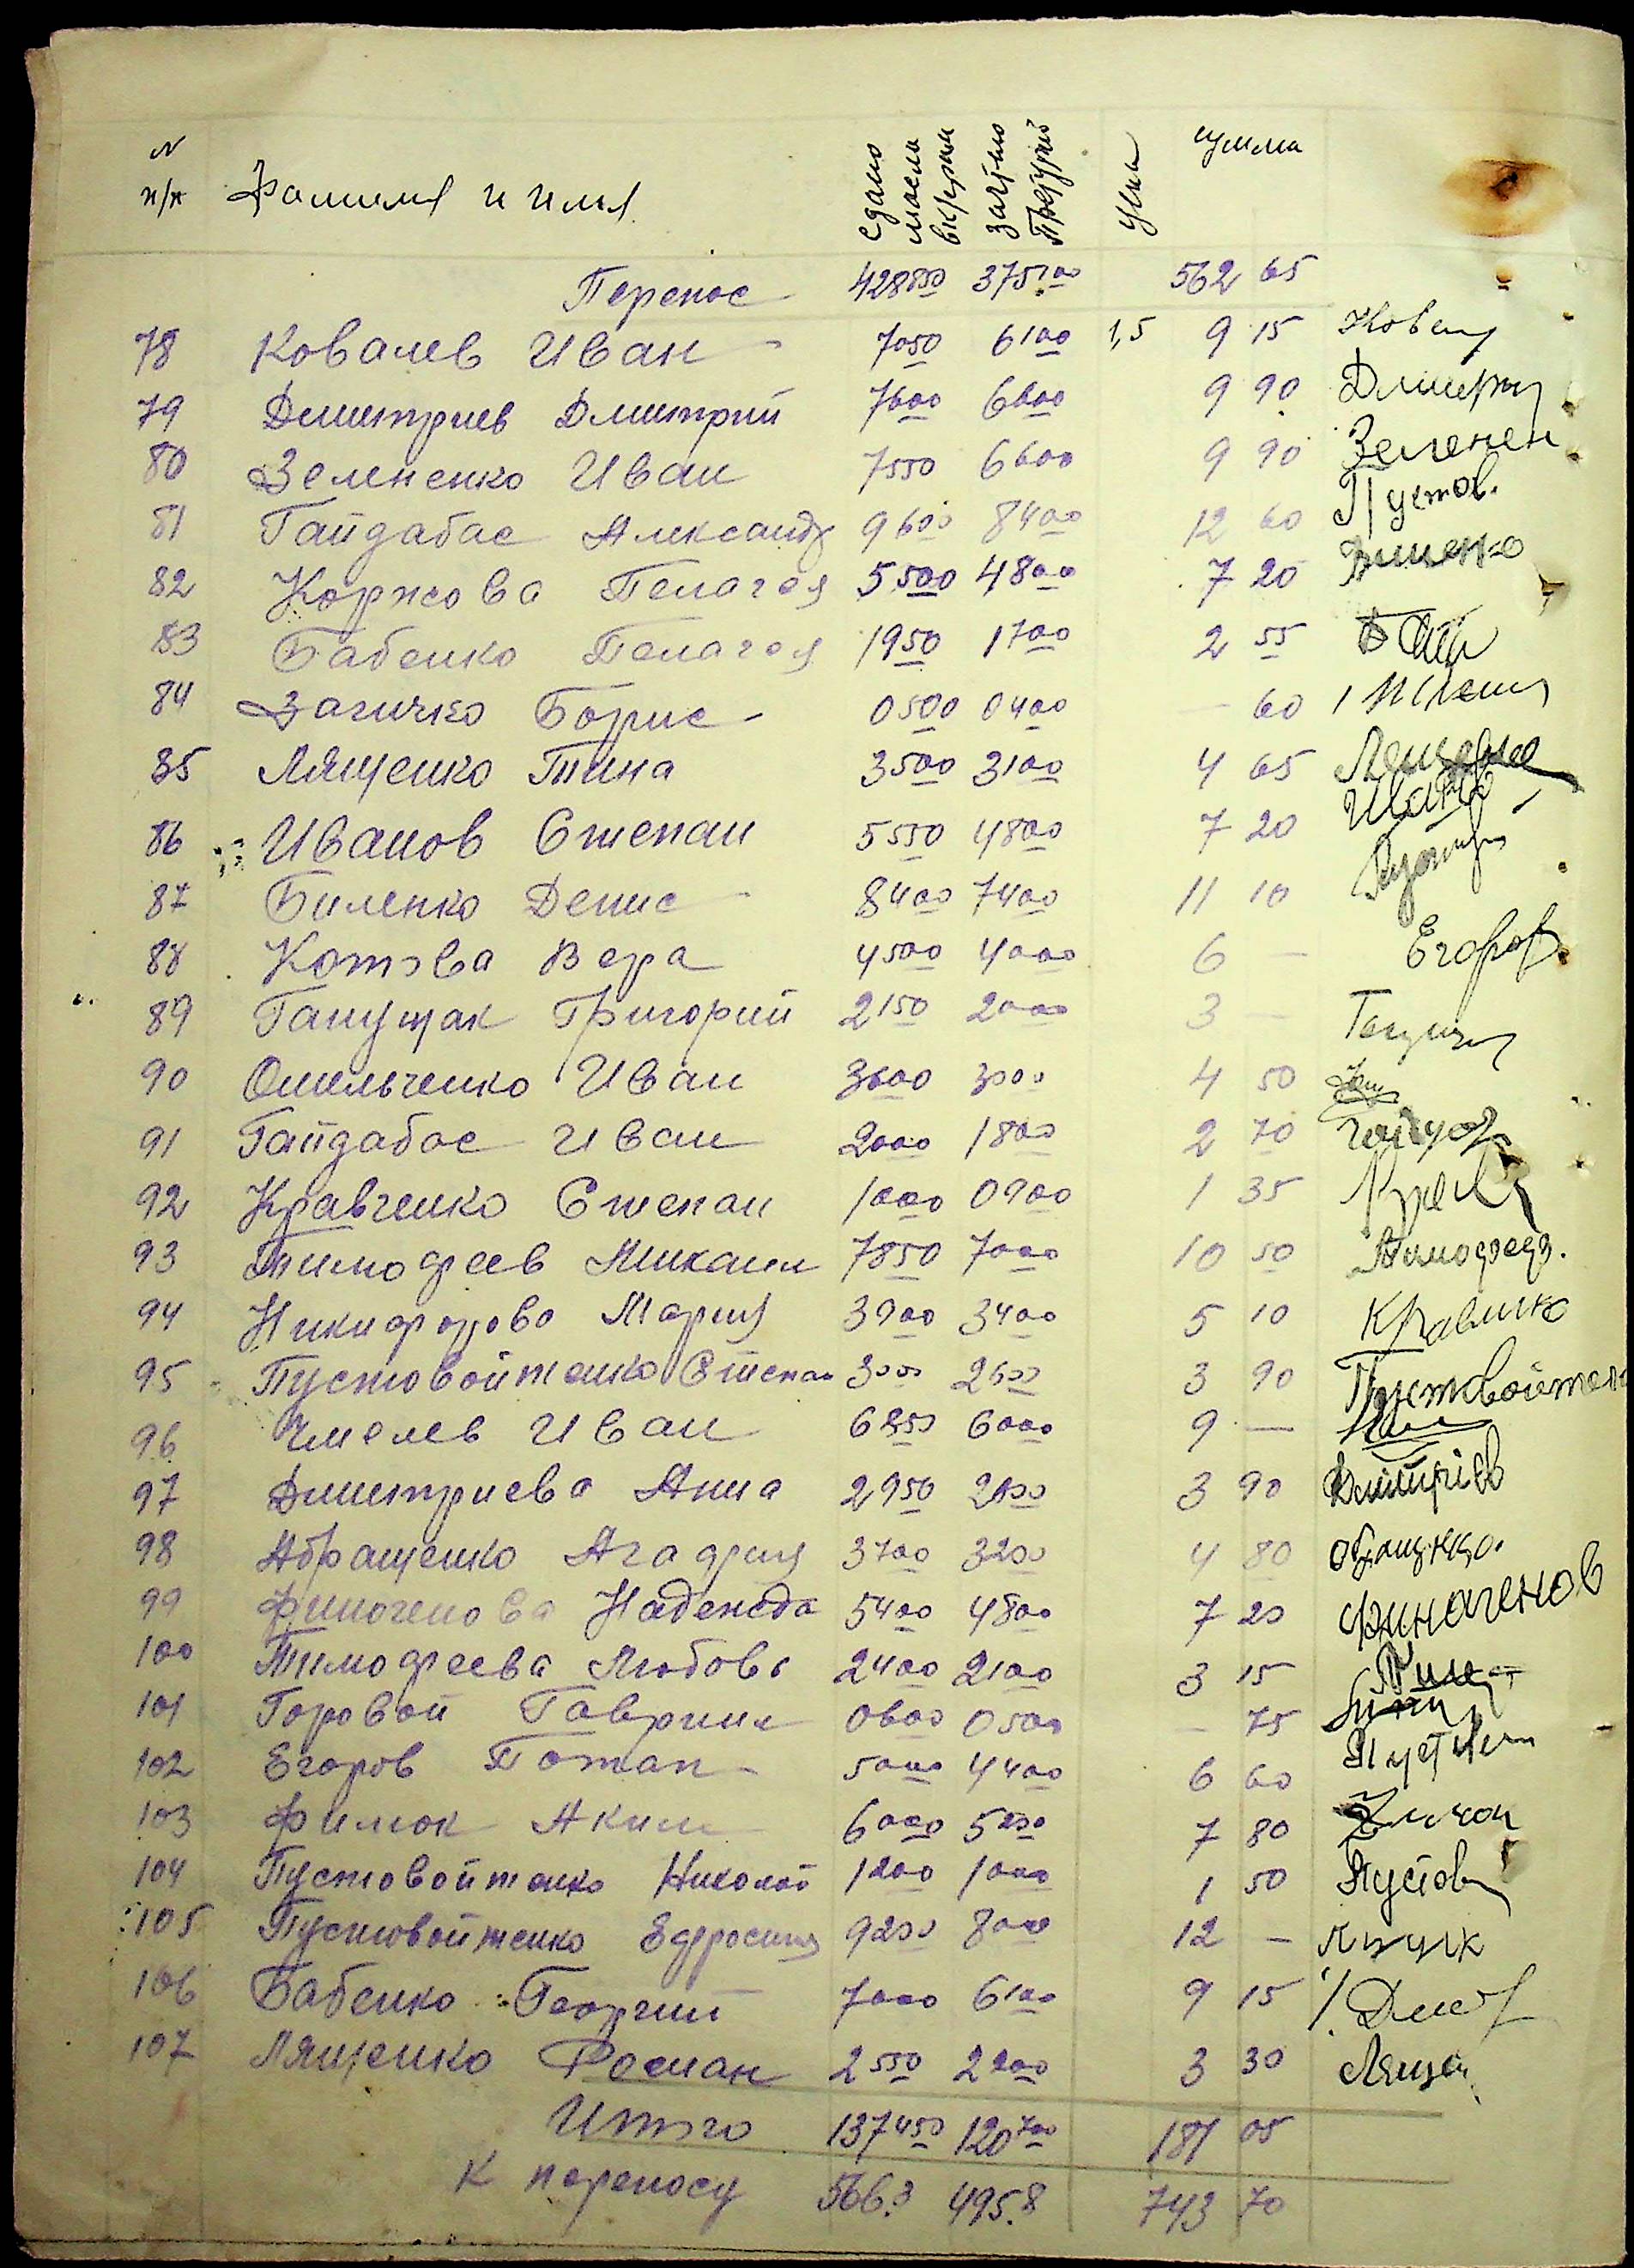 N п/п Фамилия и имя Сдано масла в кгр. Зачтено цена сумма
Перенос 428850 375100 562 65
78 Ковалев Иван 7050 6100 1,5 9 15
79 Дмитриев Дмитрий 7600 6600 9 90 Дмитр
80 Зелененко Иван 7550 6600 9 90 Зеленен
81 Гайдабас Александр 9600 8400 12 60 Пустов.
82 Коржова Пелагея 5500 4800 7 20
83 Бабенко Пелагея 1950 1700 2 55
84 Заничко Борис 0500 0400 - 60
85 Лященко Тина 3500 3100 4 65
86 Иванов Степан 5550 4800 7 20
87 Биленко Денис 8400 7400 11 10
88 Котова Вера 4500 4000 6 — Егоров
89 Ганущак Григорий 2150 2000 3 —
90 Омельченко Иван 3600 3000 4 50
91 Гайдабас Иван 2000 1800 2 70
92 Кравченко Степан 1000 0900 1 35
93 Тимофеев Михаил 7850 7000 10 50
94 Никифорова Мария 3900 3400 5 10
95 Пустовойтенко Степан 3000 2600 3 90 Пустовойтенко
96 Чмелев Иван 6850 6000 9 —
97 Дмитриева Анна 2950 2600 3 90
98 Абращенко Агафия 3700 3200 4 80
99 Финогенова Надежда 5400 4800 7 20 Финогенов
100 Тимофеева Любовь 2400 2100 3 15
101 Горовой Гавриил 0600 0500 - 75
102 Егоров Потап 5000 4400 6 60
103 Филюк Аким 6000 5200 7 80
104 Пустовойтенко Николай 1200 1000 1 50 Пустов
105 Пустовойтенко Ефросиния 9200 8000 12 —
106 Бабенко Георгий 7000 6100 9 15
107 Лященко Роман 2550 2200 3 30 Лящен
Итого 137450 120700 181 05
К переносу 566.3 495.8 743 70